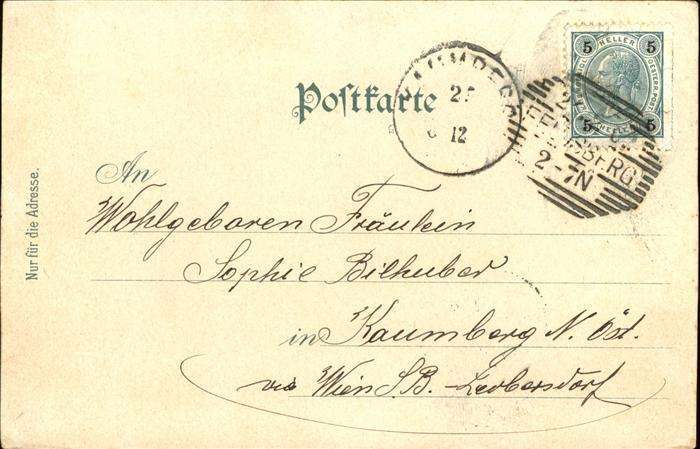 Postkarte
5 HELLER 5
5 5
25
12
2-7N
Nur für die Adresse.
An
Wohlgeboren Fräulein
Sophie Bilhuber
in Kaumberg N. Öst.
via Wien S. B. - Leobersdorf